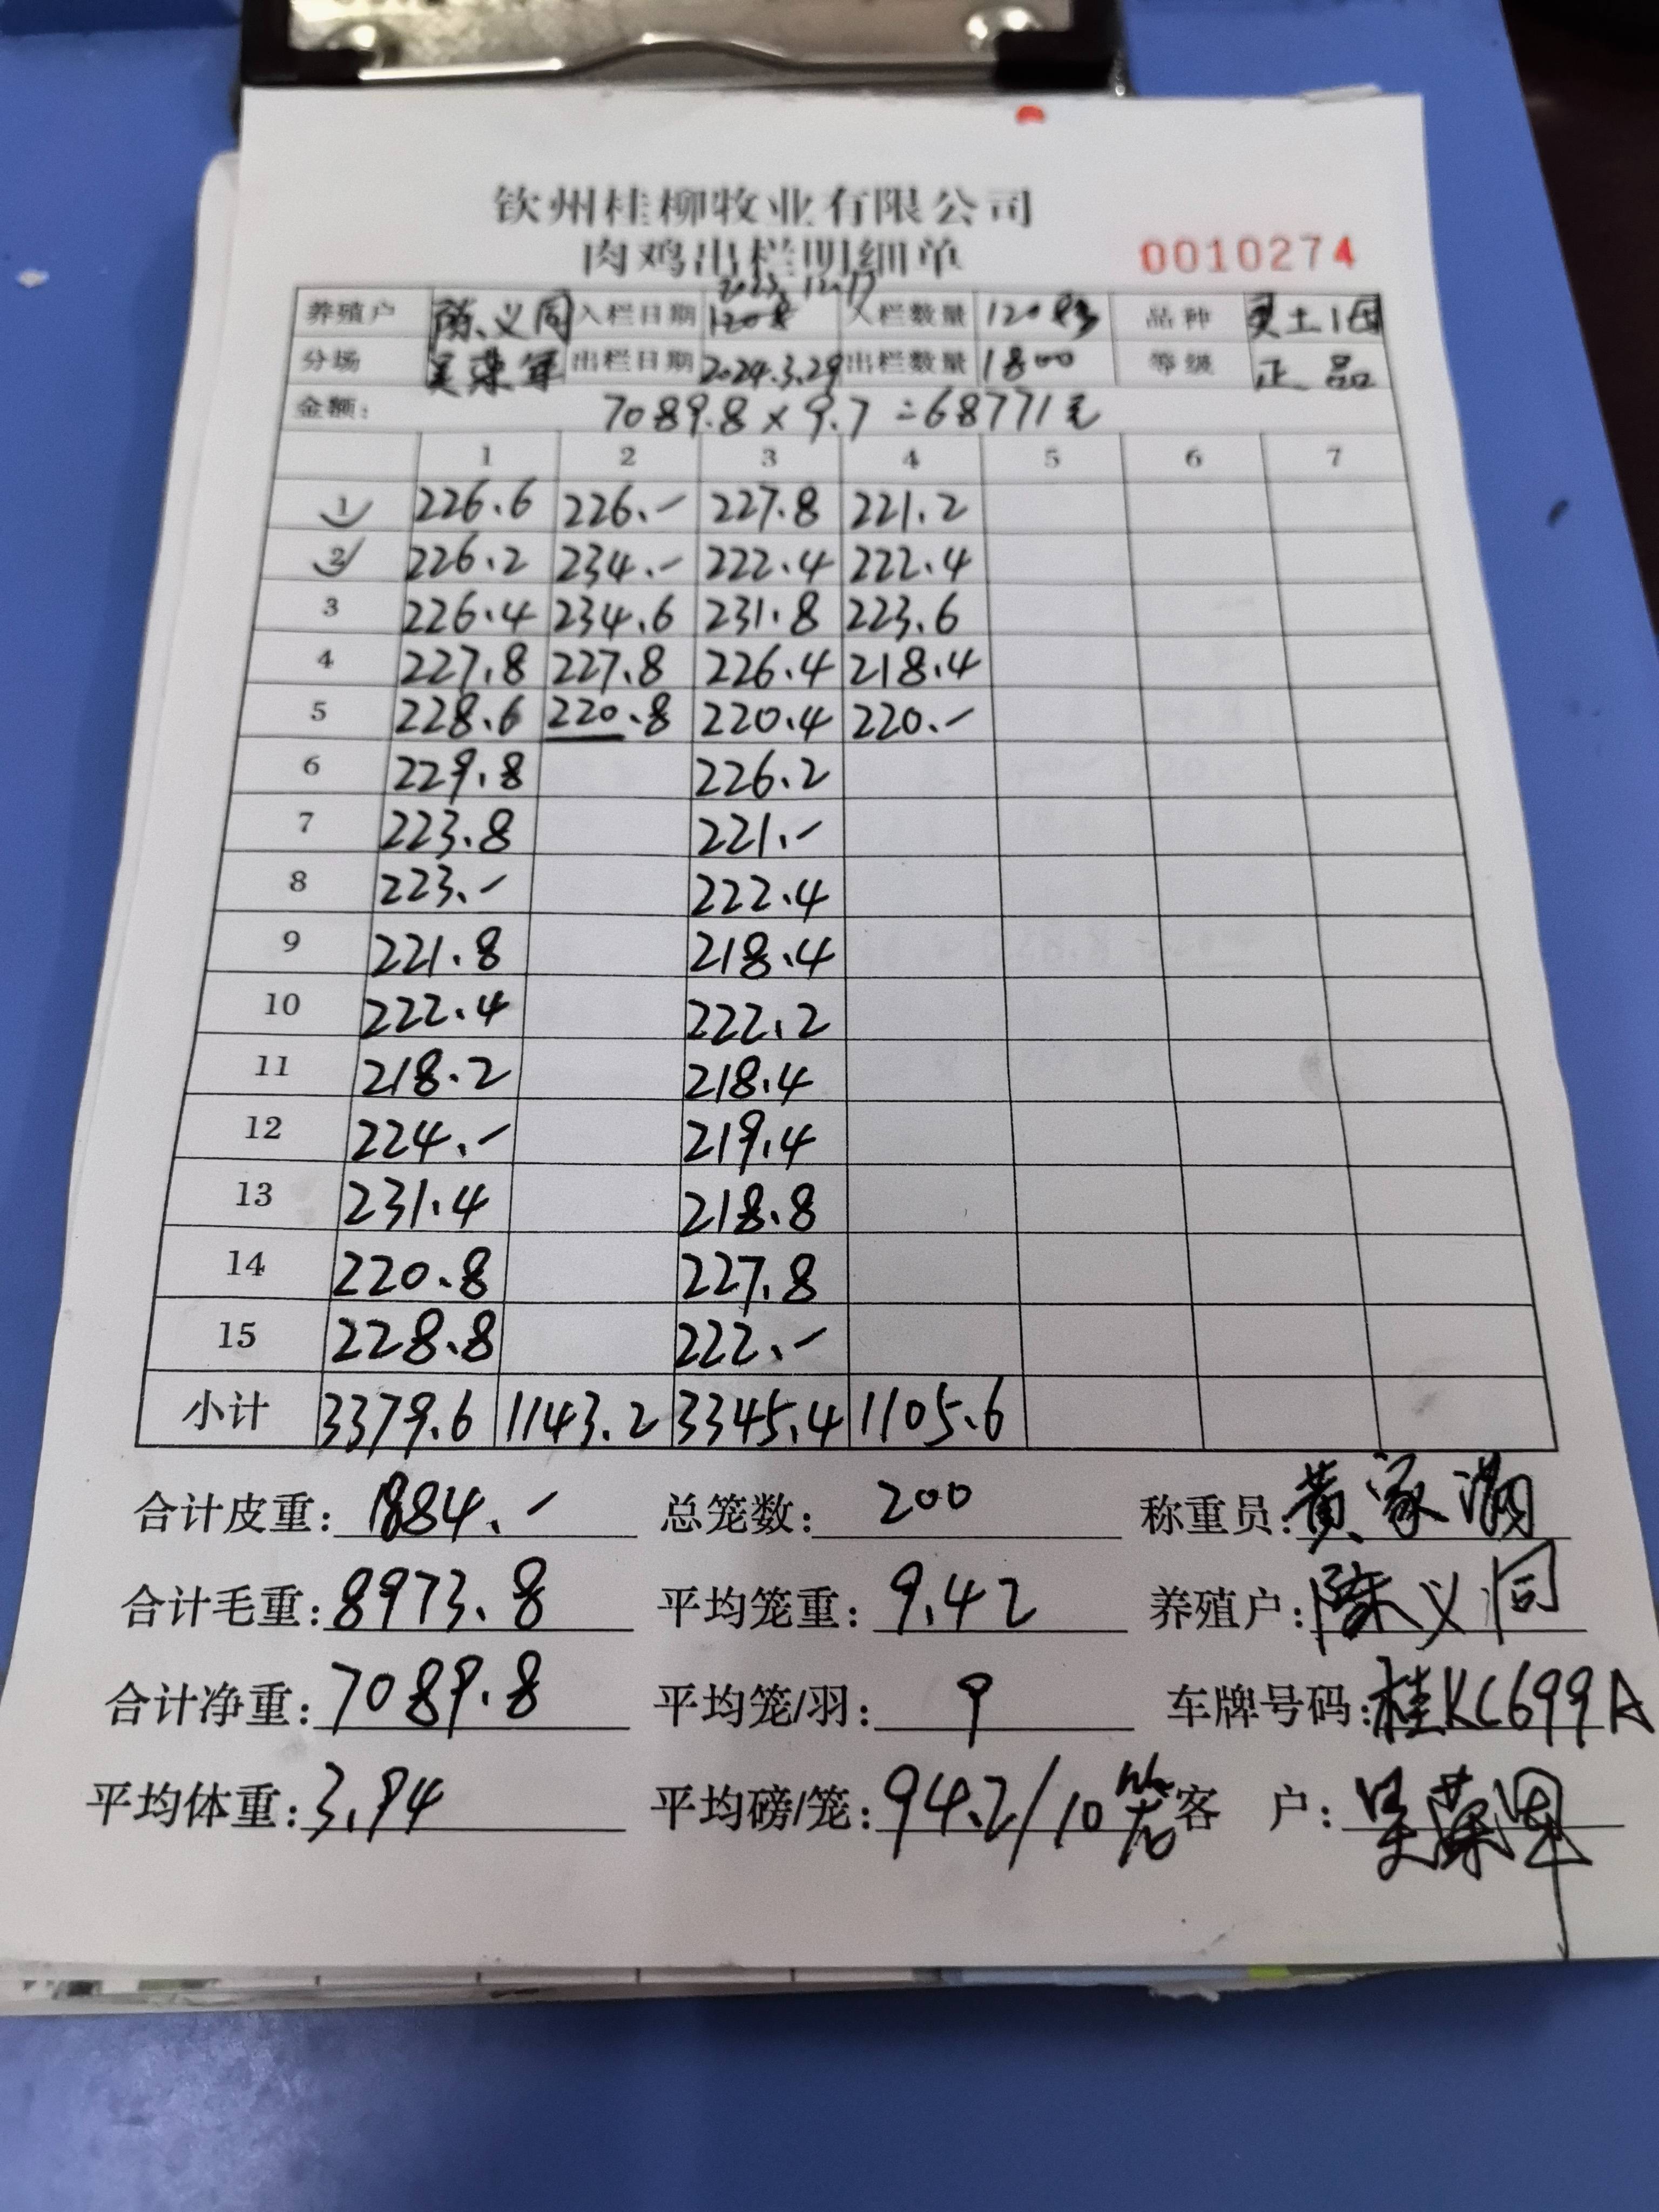 钦州桂柳牧业有限公司
肉鸡出栏明细单 0010274
2023.12.17
养殖户 陈义同 入栏日期 入栏数量 品种
分场 出栏日期 2024.3.29 出栏数量 1800 等级 正品
金额: 7089.8×9.7=68771元
1 2 3 4 5 6 7
1 226.6 226.- 227.8 221.2
2 226.2 234.- 222.4 222.4
3 226.4 234.6 231.8 223.6
4 227.8 227.8 226.4 218.4
5 228.6 220.8 220.4 220.-
6 229.8 226.2
7 223.8 221.-
8 223.- 222.4
9 221.8 218.4
10 222.4 222.2
11 218.2 218.4
12 224.- 219.4
13 231.4 218.8
14 220.8 227.8
15 228.8 222.-
小计 3379.6 1143.2 3345.4 1105.6
合计皮重: 1884.- 总笼数: 200 称重员: 黄家
合计毛重: 8973.8 平均笼重: 9.42 养殖户: 陈义同
合计净重: 7089.8 平均笼/羽: 9 车牌号码: 桂KC699A
平均体重: 3.94 平均磅/笼: 94.2/10笼 客 户: